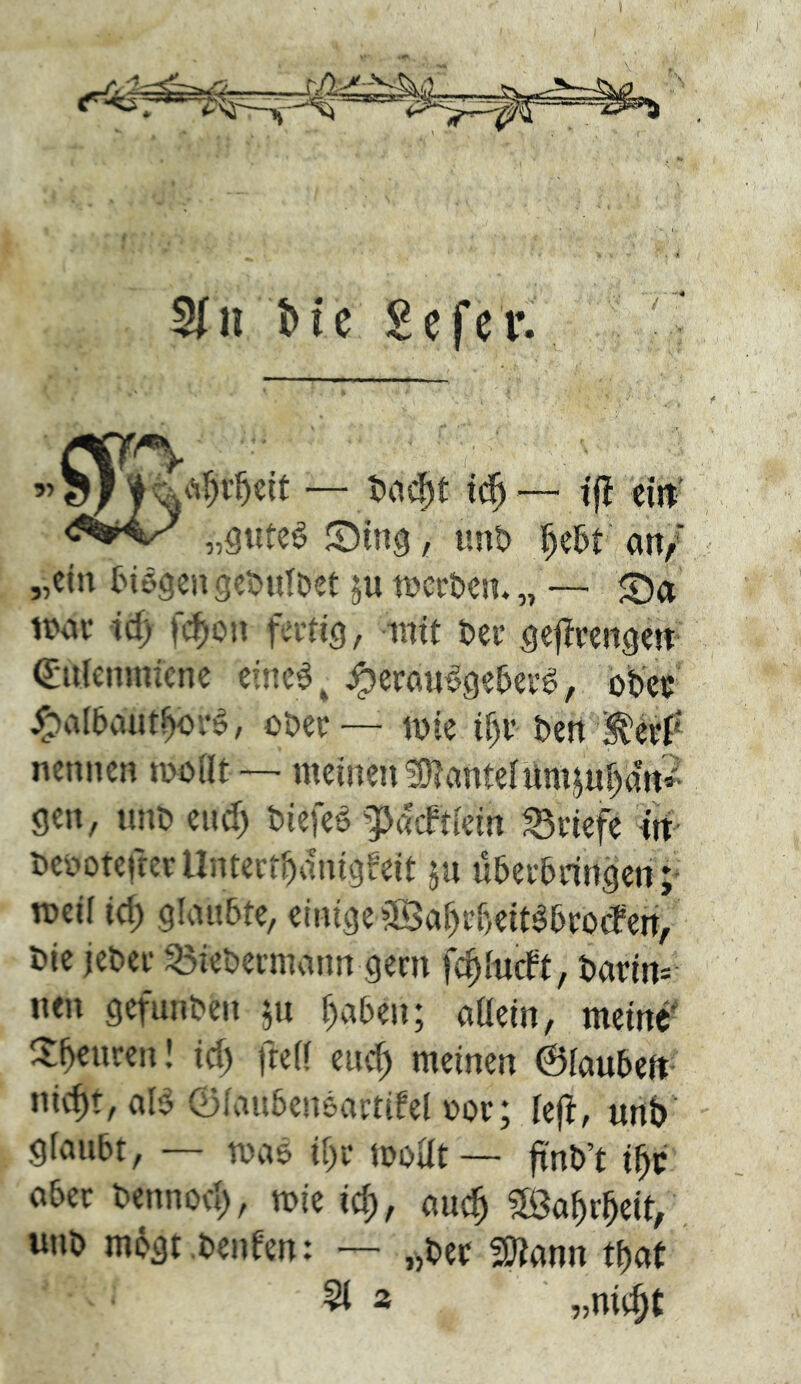 An die Leser.
„Wahrheit — dacht ich — ist ein
„gutes Ding, und hebt an,
„ein bisgen geduldet zu werden. „ — Da
war ich schon fertig, mit der gestrengen
Eulenmiene eines Herausgebers, oder
Halbauthors, oder — wie ihr den Kerl
nennen wollt — meinen Mantel umzuhän-
gen, und euch dieses Päcktlein Briefe in
devotester Unterthänigkeit zu überbringen;
weil ich glaubte, einige Wahrheitsbrocken,
die jeder Biedermann gern schluckt, darin-
nen gefunden zu haben; allein, meine
Theuren! ich stell euch meinen Glauben
nicht, als Glaubensartikel vor; lest, und
glaubt, — was ihr wollt — find't ihr
aber dennoch, wie ich, auch Wahrheit,
und mögt denken: — „der Mann that
A 2 „nicht